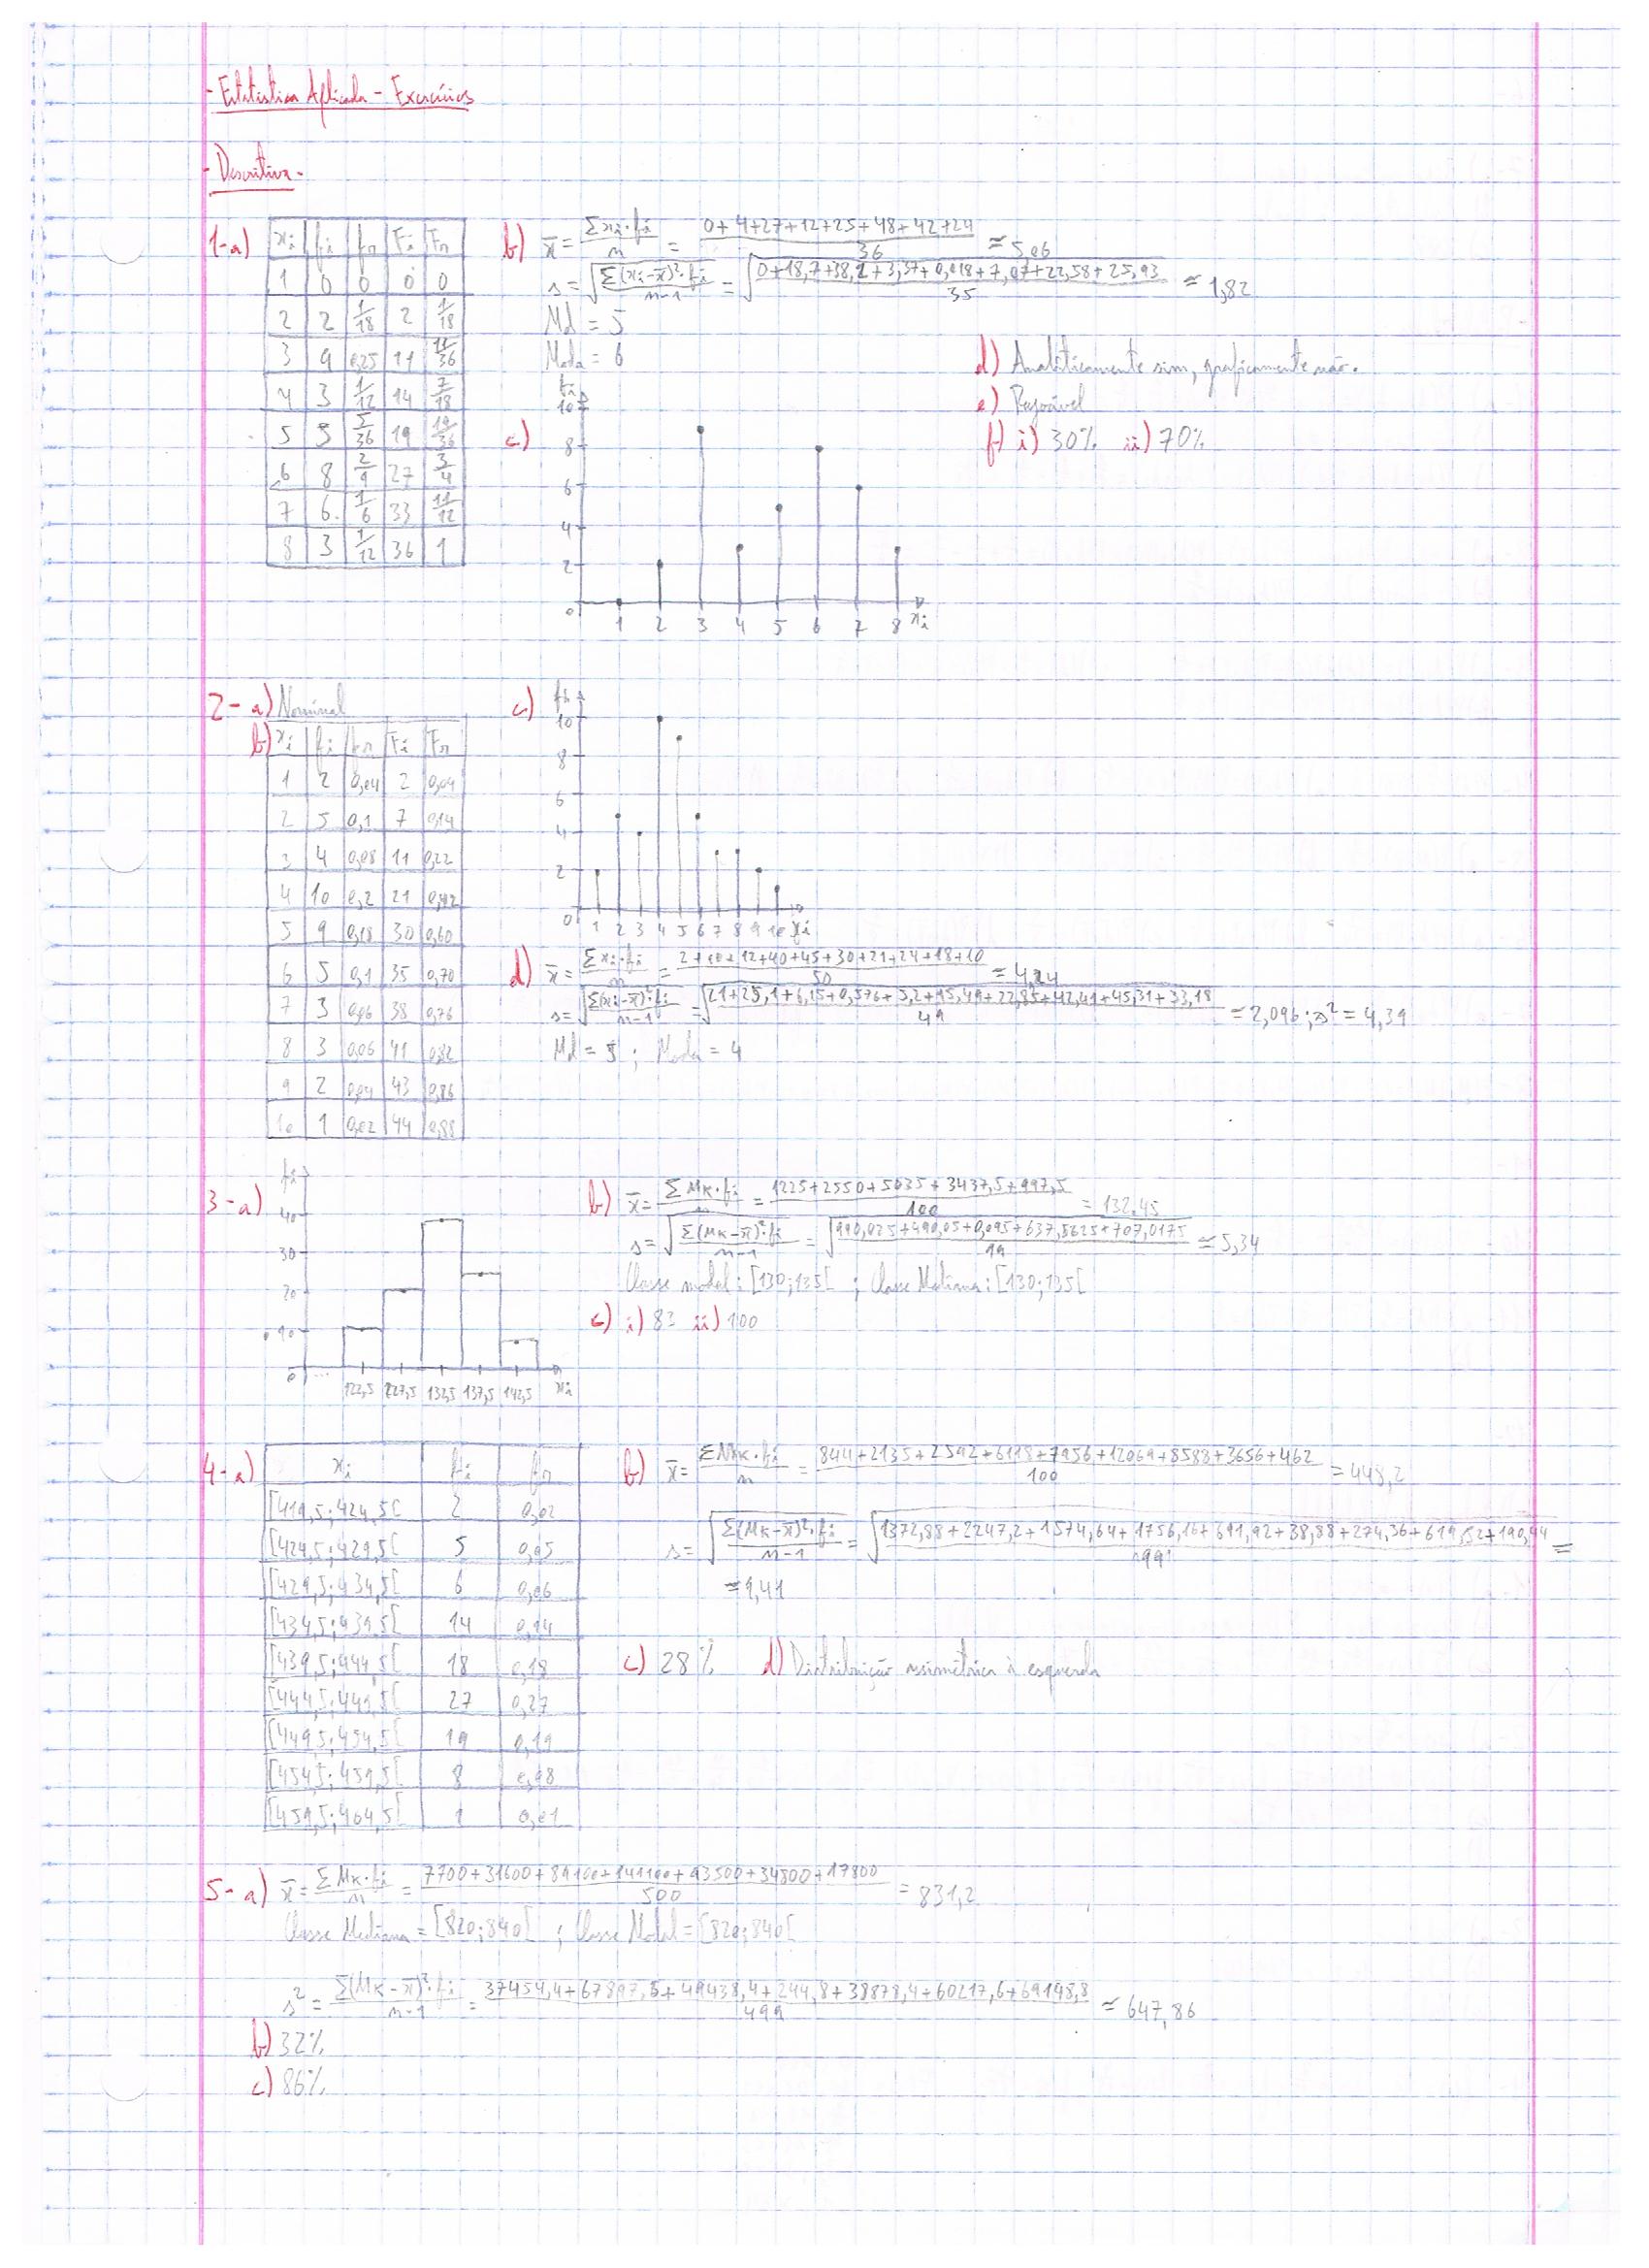 - Estatística Aplicada - Exercícios
- Descritiva -
1-a)
xi | fi | fr | Fi | Fr
1 | 0 | 0 | 0 | 0
2 | 2 | 1/18 | 2 | 1/18
3 | 9 | 0,25 | 11 | 11/36
4 | 3 | 1/12 | 14 | 7/18
5 | 5 | 5/36 | 19 | 19/36
6 | 8 | 2/9 | 27 | 3/4
7 | 6 | 1/6 | 33 | 11/12
8 | 3 | 1/12 | 36 | 1
b) x̄ = Σxi·fi / n = 0+4+27+12+25+48+42+24 / 36 ≈ 5,06
s = √(Σ(xi-x̄)²·fi / n-1) = √(0+18,7+38,2+3,37+0,018+7,07+22,58+25,93 / 35) ≈ 1,82
Md = 5
Moda = 6
c)
fi
10
8
6
4
2
0
1 2 3 4 5 6 7 8 xi
d) Analiticamente sim, graficamente não.
e) Razoável
f) i) 30% ii) 70%
2-a) Nominal
b)
xi | fi | fr | Fi | Fr
1 | 2 | 0,04 | 2 | 0,04
2 | 5 | 0,1 | 7 | 0,14
3 | 4 | 0,08 | 11 | 0,22
4 | 10 | 0,2 | 21 | 0,42
5 | 9 | 0,18 | 30 | 0,60
6 | 5 | 0,1 | 35 | 0,70
7 | 3 | 0,06 | 38 | 0,76
8 | 3 | 0,06 | 41 | 0,82
9 | 2 | 0,04 | 43 | 0,86
10 | 1 | 0,02 | 44 | 0,88
c) fi
10
8
6
4
2
0
1 2 3 4 5 6 7 8 9 10 xi
d) x̄ = Σxi·fi / n = 2+10+12+40+45+30+21+24+18+10 / 50 = 4,24
s = √(Σ(xi-x̄)²·fi / n-1) = √(21+25,1+6,15+0,576+5,2+15,49+22,85+42,41+45,31+33,18 / 49) = 2,096; s² = 4,39
Md = 5 ; Moda = 4
3-a)
fi
40
30
20
10
0 ...
122,5 127,5 132,5 137,5 142,5 xi
b) x̄ = ΣMk·fi / n = 1225+2550+5035+3437,5+997,5 / 100 = 132,45
s = √(Σ(Mk-x̄)²·fi / n-1) = √(990,025+490,05+0,095+637,5625+707,0175 / 99) ≈ 5,34
Classe modal: [130;135[ ; Classe Mediana: [130;135[
c) i) 83 ii) 100
4-a)
xi | fi | fr
[419,5;424,5[ | 2 | 0,02
[424,5;429,5[ | 5 | 0,05
[429,5;434,5[ | 6 | 0,06
[434,5;439,5[ | 14 | 0,14
[439,5;444,5[ | 18 | 0,18
[444,5;449,5[ | 27 | 0,27
[449,5;454,5[ | 19 | 0,19
[454,5;459,5[ | 8 | 0,08
[459,5;464,5[ | 1 | 0,01
b) x̄ = ΣMk·fi / n = 844+2135+2592+6118+7956+12069+8588+3656+462 / 100 = 448,2
s = √(Σ(Mk-x̄)²·fi / n-1) = √(1372,88+2247,2+1574,64+1756,16+691,92+38,88+274,36+619,52+190,44 / 99) =
≈ 9,41
c) 28% d) Distribuição assimétrica à esquerda
5-a) x̄ = ΣMk·fi / n = 7700+31600+89100+141100+93500+34800+17800 / 500 = 831,2
Classe Mediana = [820;840[ ; Classe Modal = [820;840[
s² = Σ(Mk-x̄)²·fi / n-1 = 37454,4+67897,6+49438,4+244,8+38878,4+60217,6+69148,8 / 499 ≈ 647,86
b) 32%
c) 86%